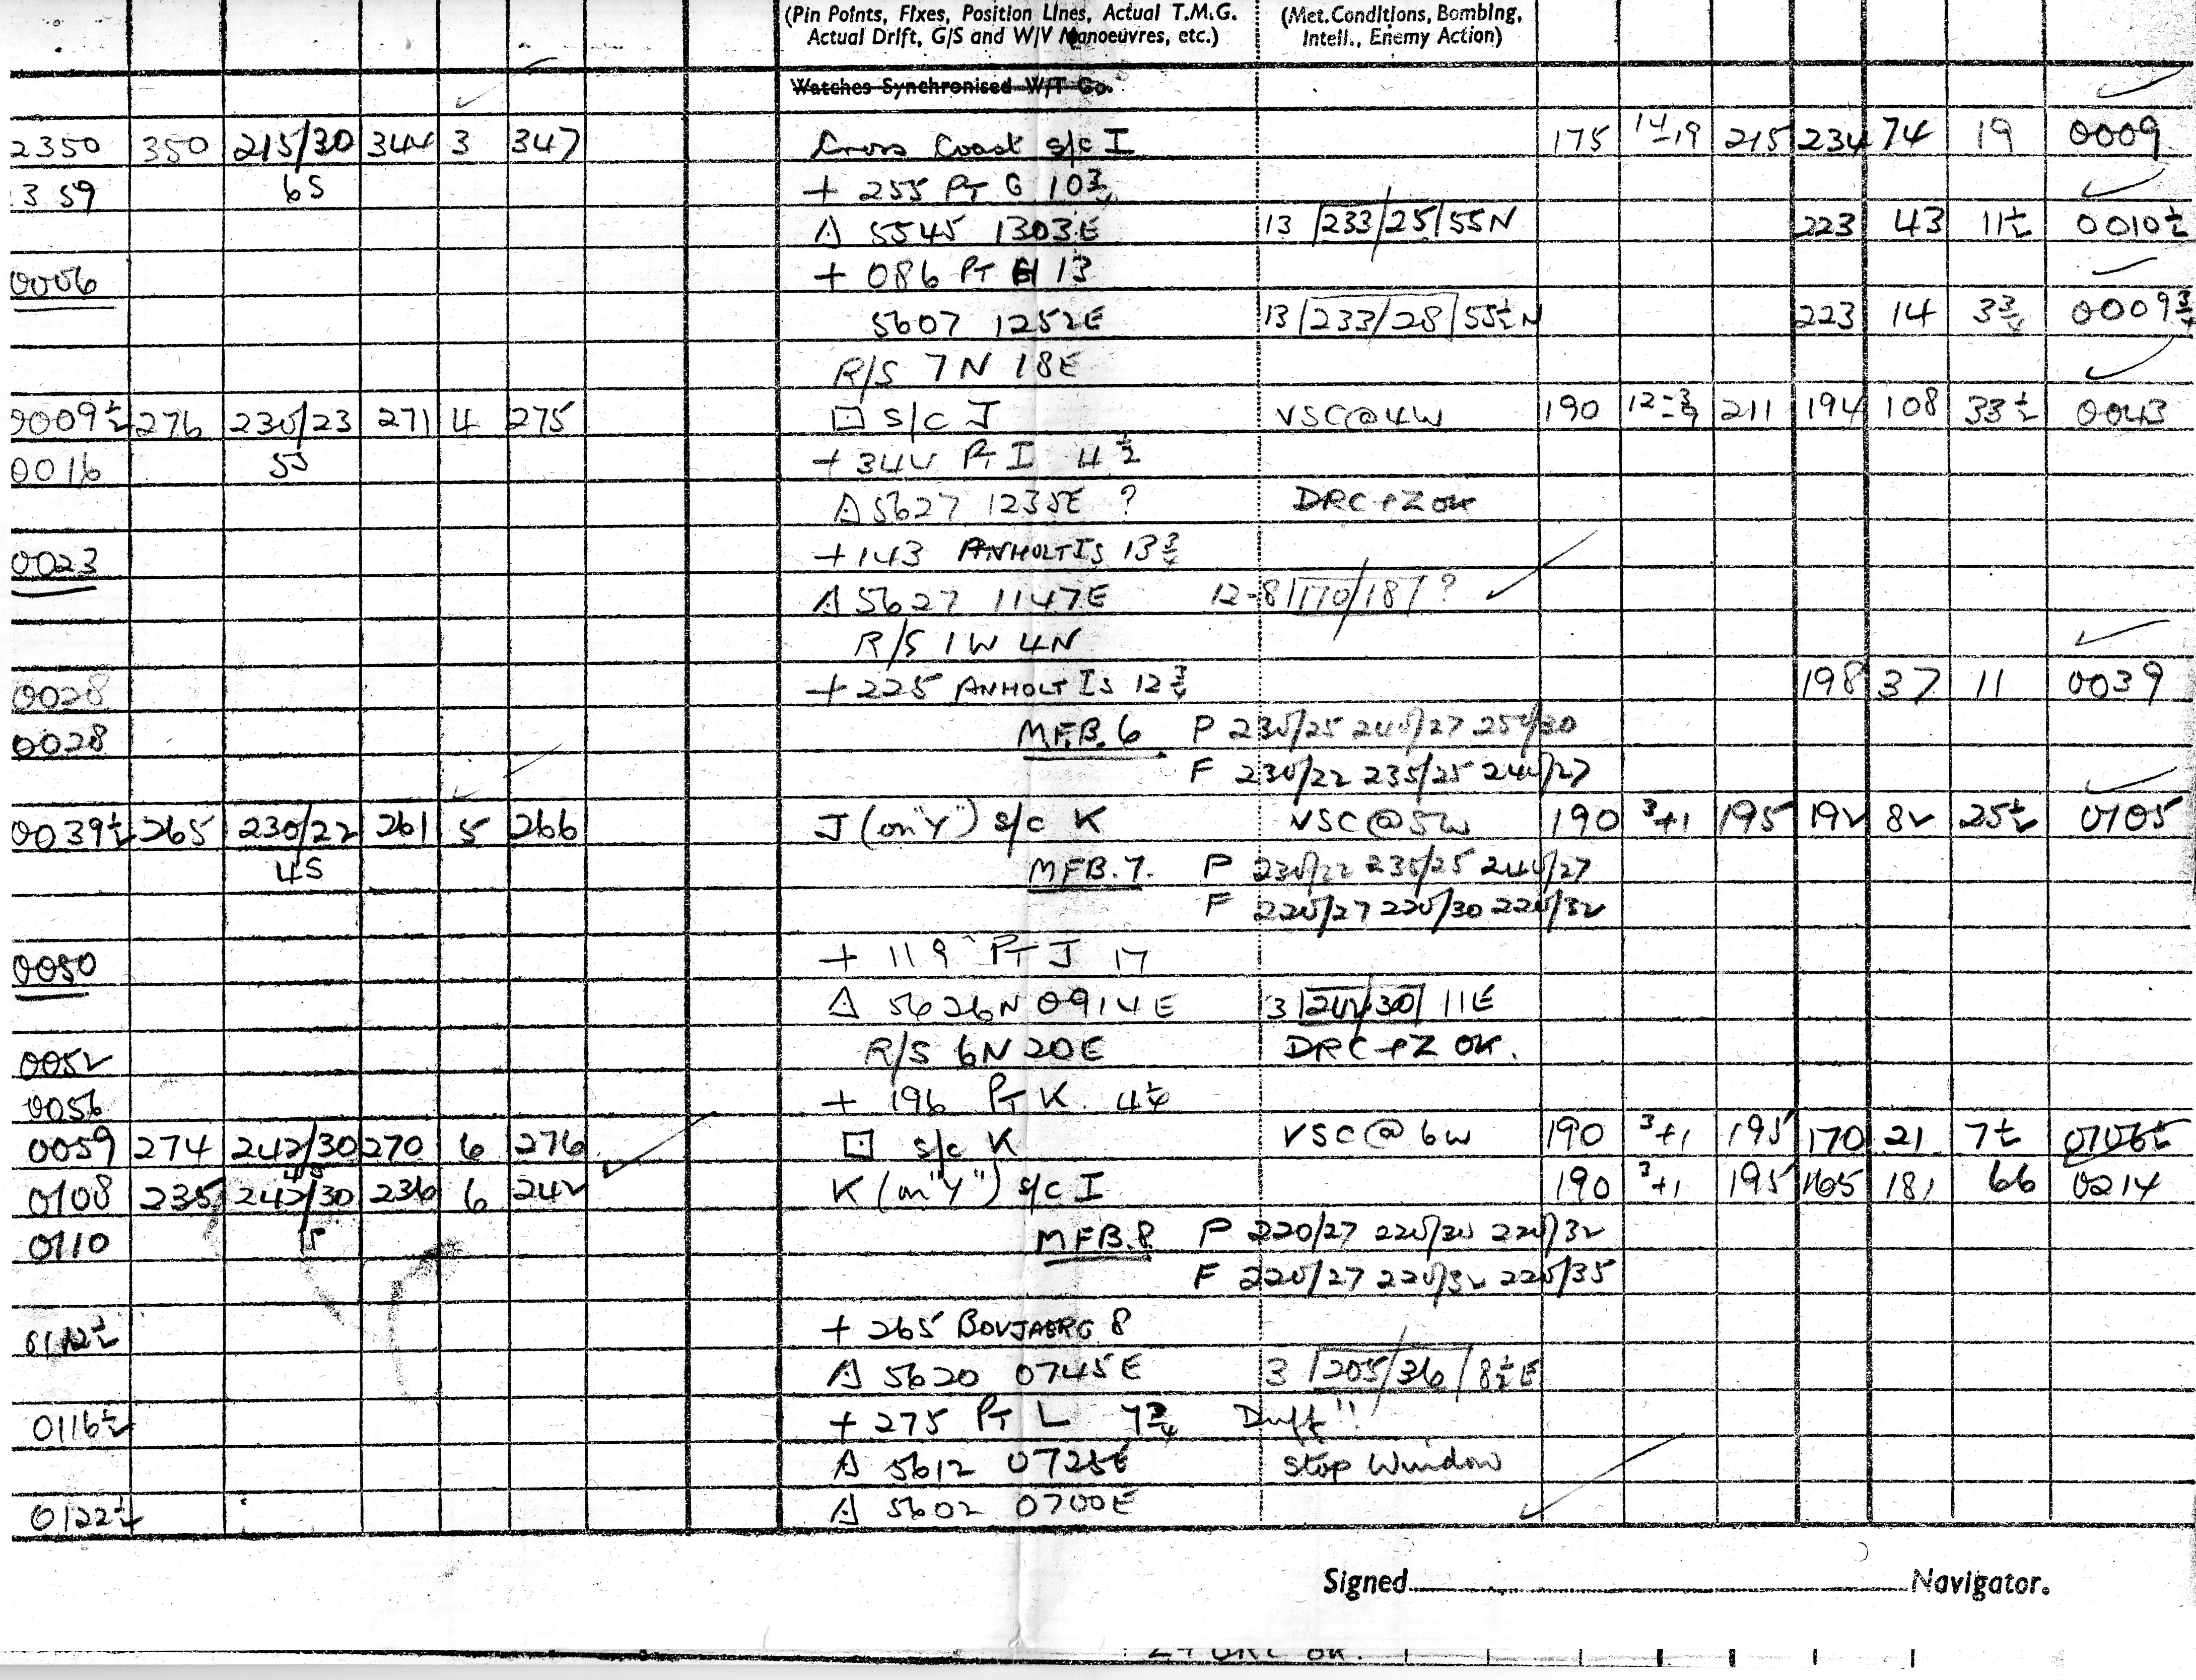 (Pin Points, Fixes, Position Lines, Actual T.M.G. (Met.Conditions, Bombing,
Actual Drift, G/S and W/V Manoeuvres, etc.) Intell., Enemy Action)
Watches Synchronised W/T Go.
2350 350 215/30 344 3 347 Cross Coast s/c I 175 14-19 215 234 74 19 0009
359 65 + 255 PT G 10¾
△ 5545 1303E 13 233/25 55N 223 43 11½ 0010½
0006 + 086 PT H 13
5607 1252E 13 233/28 55½N 223 14 3¾ 0009¾
R/S 7N 18E
0009½ 276 230/23 271 4 275 □ s/c J VSC@4W 190 12-¾ 211 194 108 33½ 0043
0016 55 + 344 PT I 4½
△ 5627 1235E ? DRC+Z OK
0023 + 143 ANHOLT IS 13¾
△ 5627 1147E 12-8 170/18 ?
R/S 1W 4N
0028 + 225 ANHOLT IS 12¾ 198 37 11 0039
0028 M.F.B. 6 P 230/25 240/27 250/30
F 230/22 235/25 240/27
0039½ 265 230/22 261 5 266 J (on "Y") s/c K VSC@5W 190 3+1 195 192 82 25½ 0105
45 MFB.7. P 230/22 235/25 240/27
F 220/27 220/30 220/32
0050 + 119 PT J 17
△ 5626N 0914E 3 242/30 11E
0052 R/S 6N 20E DRC+Z OK.
0056 + 196 PT K. 4¼
0059 274 242/30 270 6 276 □ s/c K VSC@6W 190 3+1 195 170 21 7½ 0106½
45
0108 235 242/30 236 6 242 K (on "Y") s/c I 190 3+1 195 165 181 66 0214
0110 15 MFB.8 P 220/27 220/30 220/32
F 220/27 220/32 220/35
0112½ + 265 BOVJAERG 8
△ 5620 0745E 3 205/36 8½E
0116½ + 275 PT L 7¾ Duff!!
△ 5612 0725E Stop Window
0122½ △ 5602 0700E
Signed Navigator.